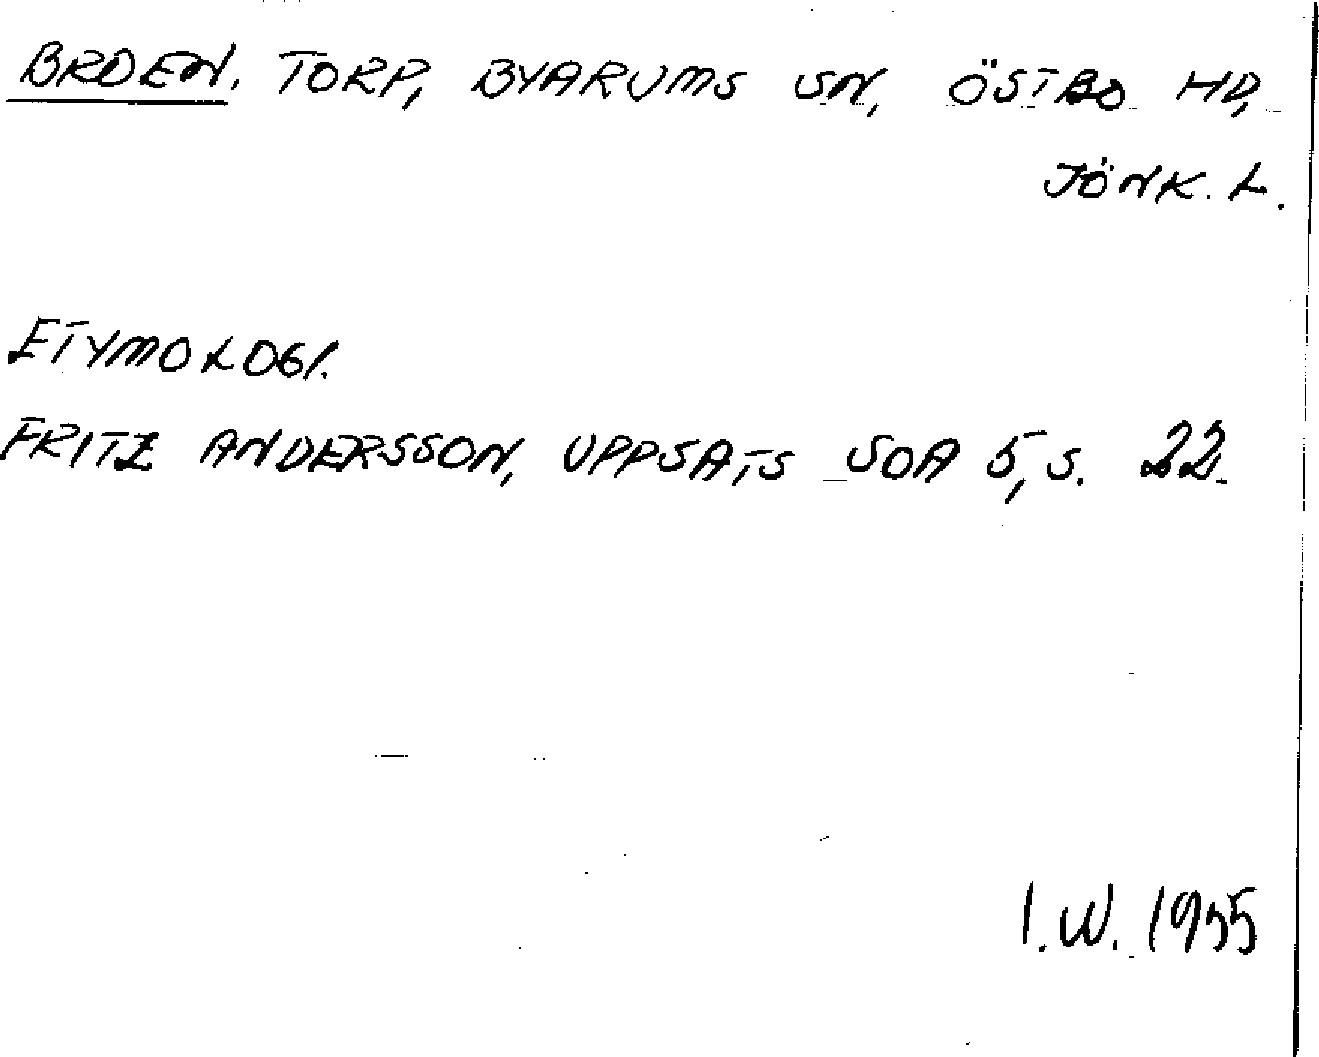 BRDEN. TORP, BYARUMS SN, ÖSTBO HD,
JÖNK. L.
ETYMOLOGI.
FRITZ ANDERSSON, UPPSATS SOA 5, S. 22.
I.W. 1955